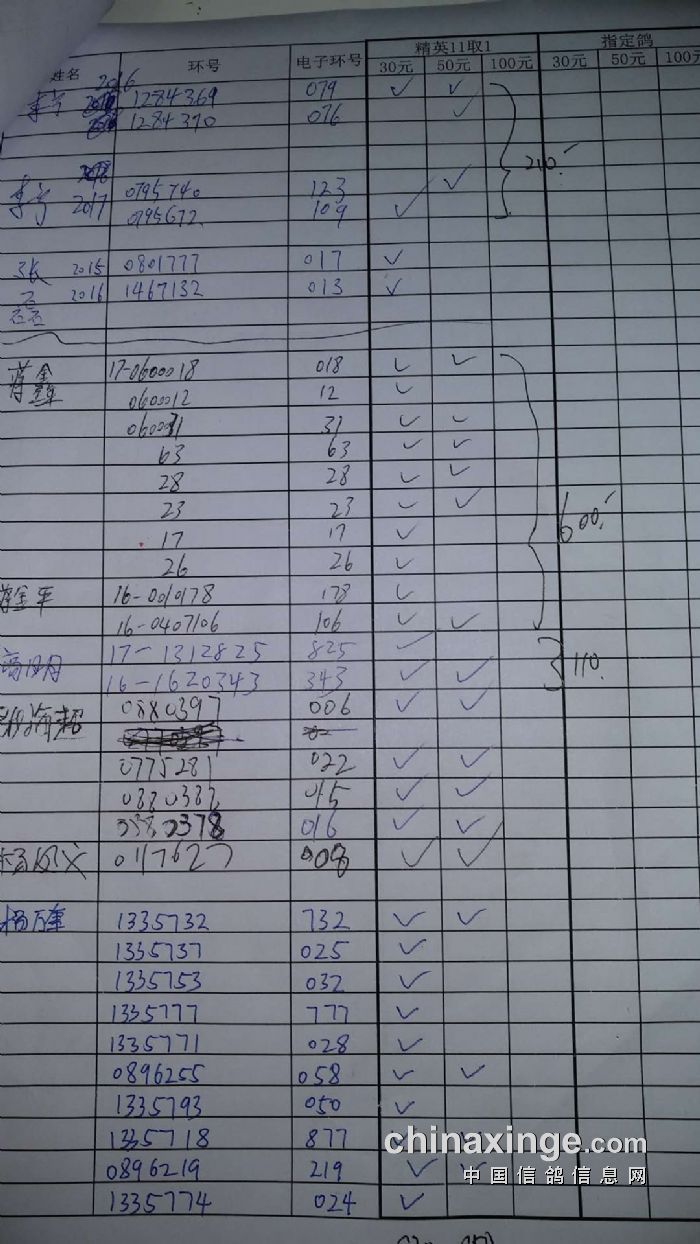 精英11取1 指定鸽
姓名 环号 电子环号 30元 50元 100元 30元 50元 100元
2016 1284369 079 ✓ ✓
1284370 076 ✓
210.
0795740 123 ✓
2017 0795672 109 ✓
张 2015 0801777 017 ✓
石 2016 1467132 013 ✓
石石
蒋金 17-0600018 018 ✓ ✓
0600012 12 ✓
060031 31 ✓ ✓
63 63 ✓ ✓
28 28 ✓ ✓
23 23 ✓ ✓
600.
17 17 ✓
26 26 ✓
178 ✓
16-0407106 106 ✓ ✓
17-1312825 825 ✓
110.
16-1620343 343 ✓ ✓
海超 0880397 006 ✓ ✓
0775281 022 ✓ ✓
✓ ✓
0378 016 ✓ ✓
0117627 008 ✓ ✓
杨万军 1335732 732 ✓ ✓
1335737 025 ✓
1335753 032 ✓
1335777 777 ✓
1335771 028 ✓
0896255 058 ✓ ✓
1335793 050 ✓
1335718 877
chinaxinge.com
0896219 219 ✓ ✓
中国信鸽信息网
1335774 024 ✓